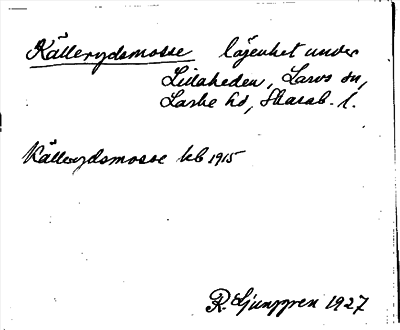 Källerydsmosse lägenhet under
Lidaheden, Larvs sn,
Laske hd, Skarab. l.
Källerydsmosse kb 1915
R. Ljunggren 1927